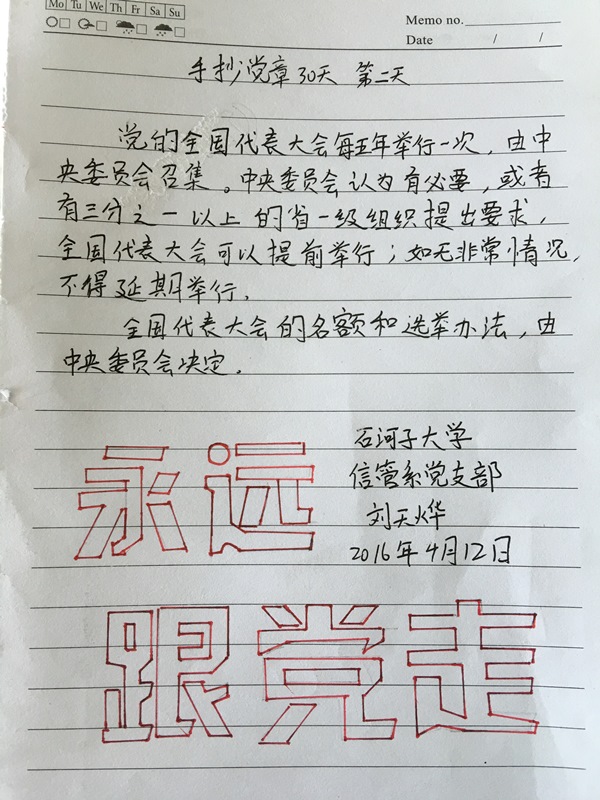 Mo Tu We Th Fr Sa Su
Memo no.
Date / /
手抄党章30天 第二天
党的全国代表大会每五年举行一次，由中
央委员会召集。中央委员会认为有必要，或者
有三分之一以上的省一级组织提出要求，
全国代表大会可以提前举行；如无非常情况，
不得延期举行.
全国代表大会的名额和选举办法，由
中央委员会决定.
永远
石河子大学
信管系党支部
刘天烨
2016年4月12日
跟党走